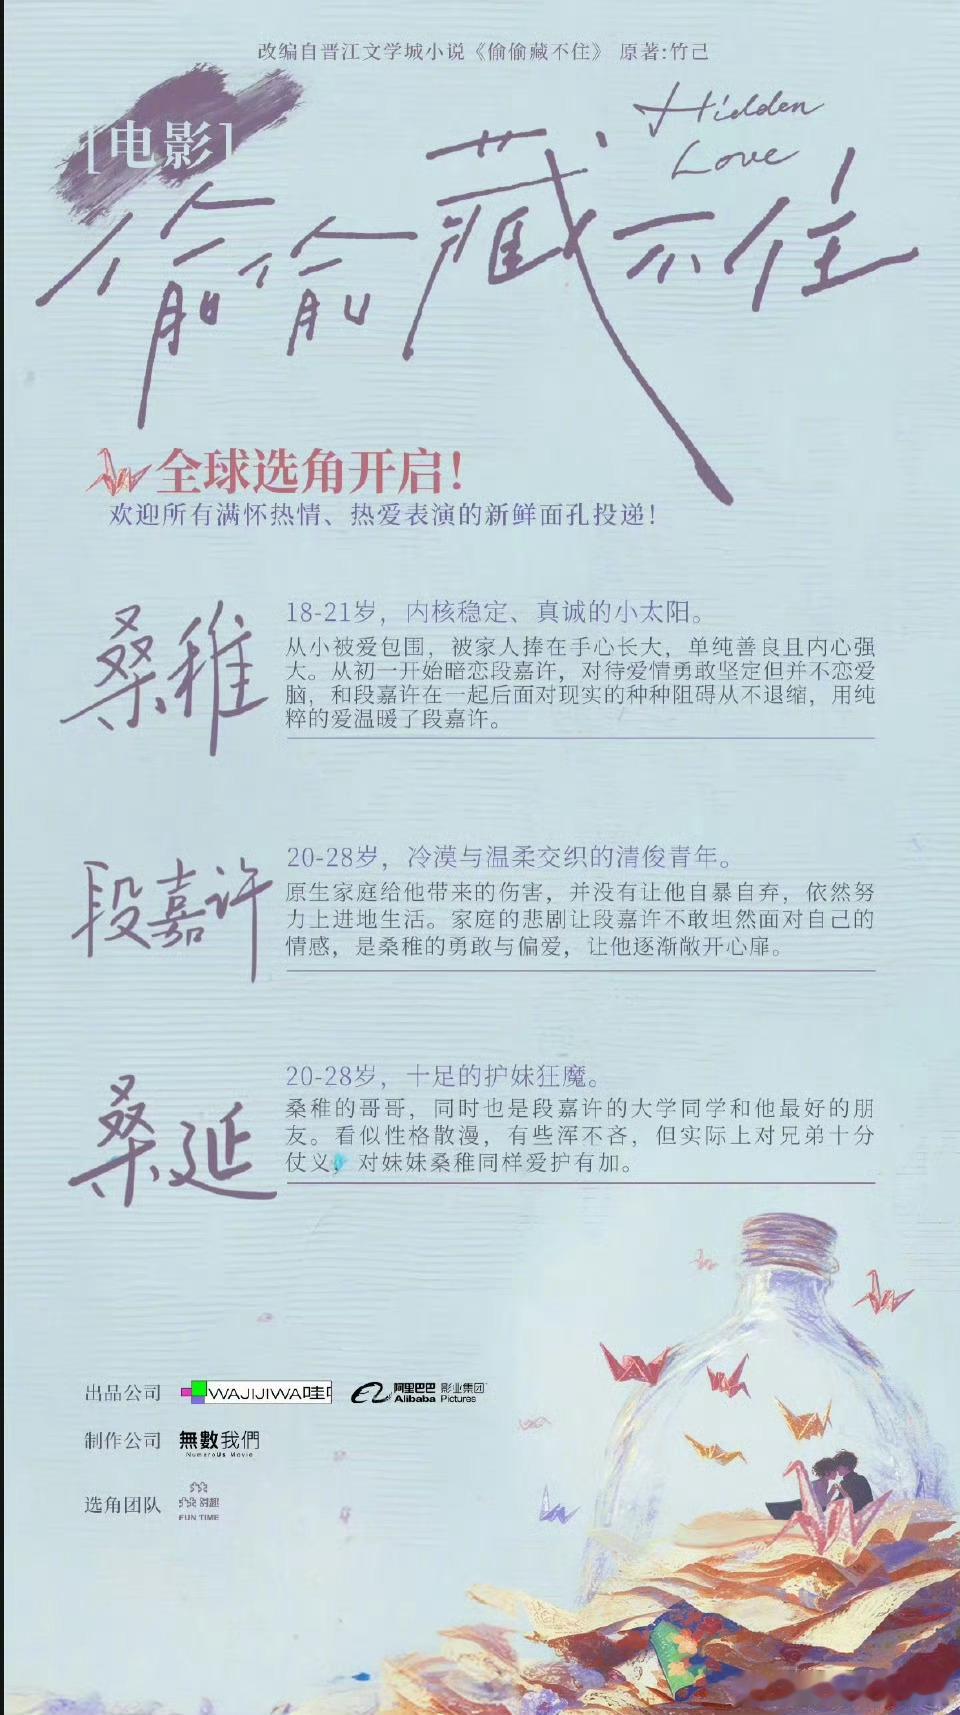 改编自晋江文学城小说《偷偷藏不住》 原著:竹己
[电影]
Hidden
Love
偷偷藏不住
全球选角开启！
欢迎所有满怀热情、热爱表演的新鲜面孔投递！
桑稚
18-21岁，内核稳定、真诚的小太阳。
从小被爱包围，被家人捧在手心长大，单纯善良且内心强
大。从初一开始暗恋段嘉许，对待爱情勇敢坚定但并不恋爱
脑，和段嘉许在一起后面对现实的种种阻碍从不退缩，用纯
粹的爱温暖了段嘉许。
段嘉许
20-28岁，冷漠与温柔交织的清俊青年。
原生家庭给他带来的伤害，并没有让他自暴自弃，依然努
力上进地生活。家庭的悲剧让段嘉许不敢坦然面对自己的
情感，是桑稚的勇敢与偏爱，让他逐渐敞开心扉。
桑延
20-28岁，十足的护妹狂魔。
桑稚的哥哥，同时也是段嘉许的大学同学和他最好的朋
友。看似性格散漫，有些浑不吝，但实际上对兄弟十分
仗义，对妹妹桑稚同样爱护有加。
出品公司 WAJIJIWA哇 阿里巴巴 影业集团
Alibaba Pictures
制作公司 無數我們
NumeroUs Movie
选角团队
FUN TIME